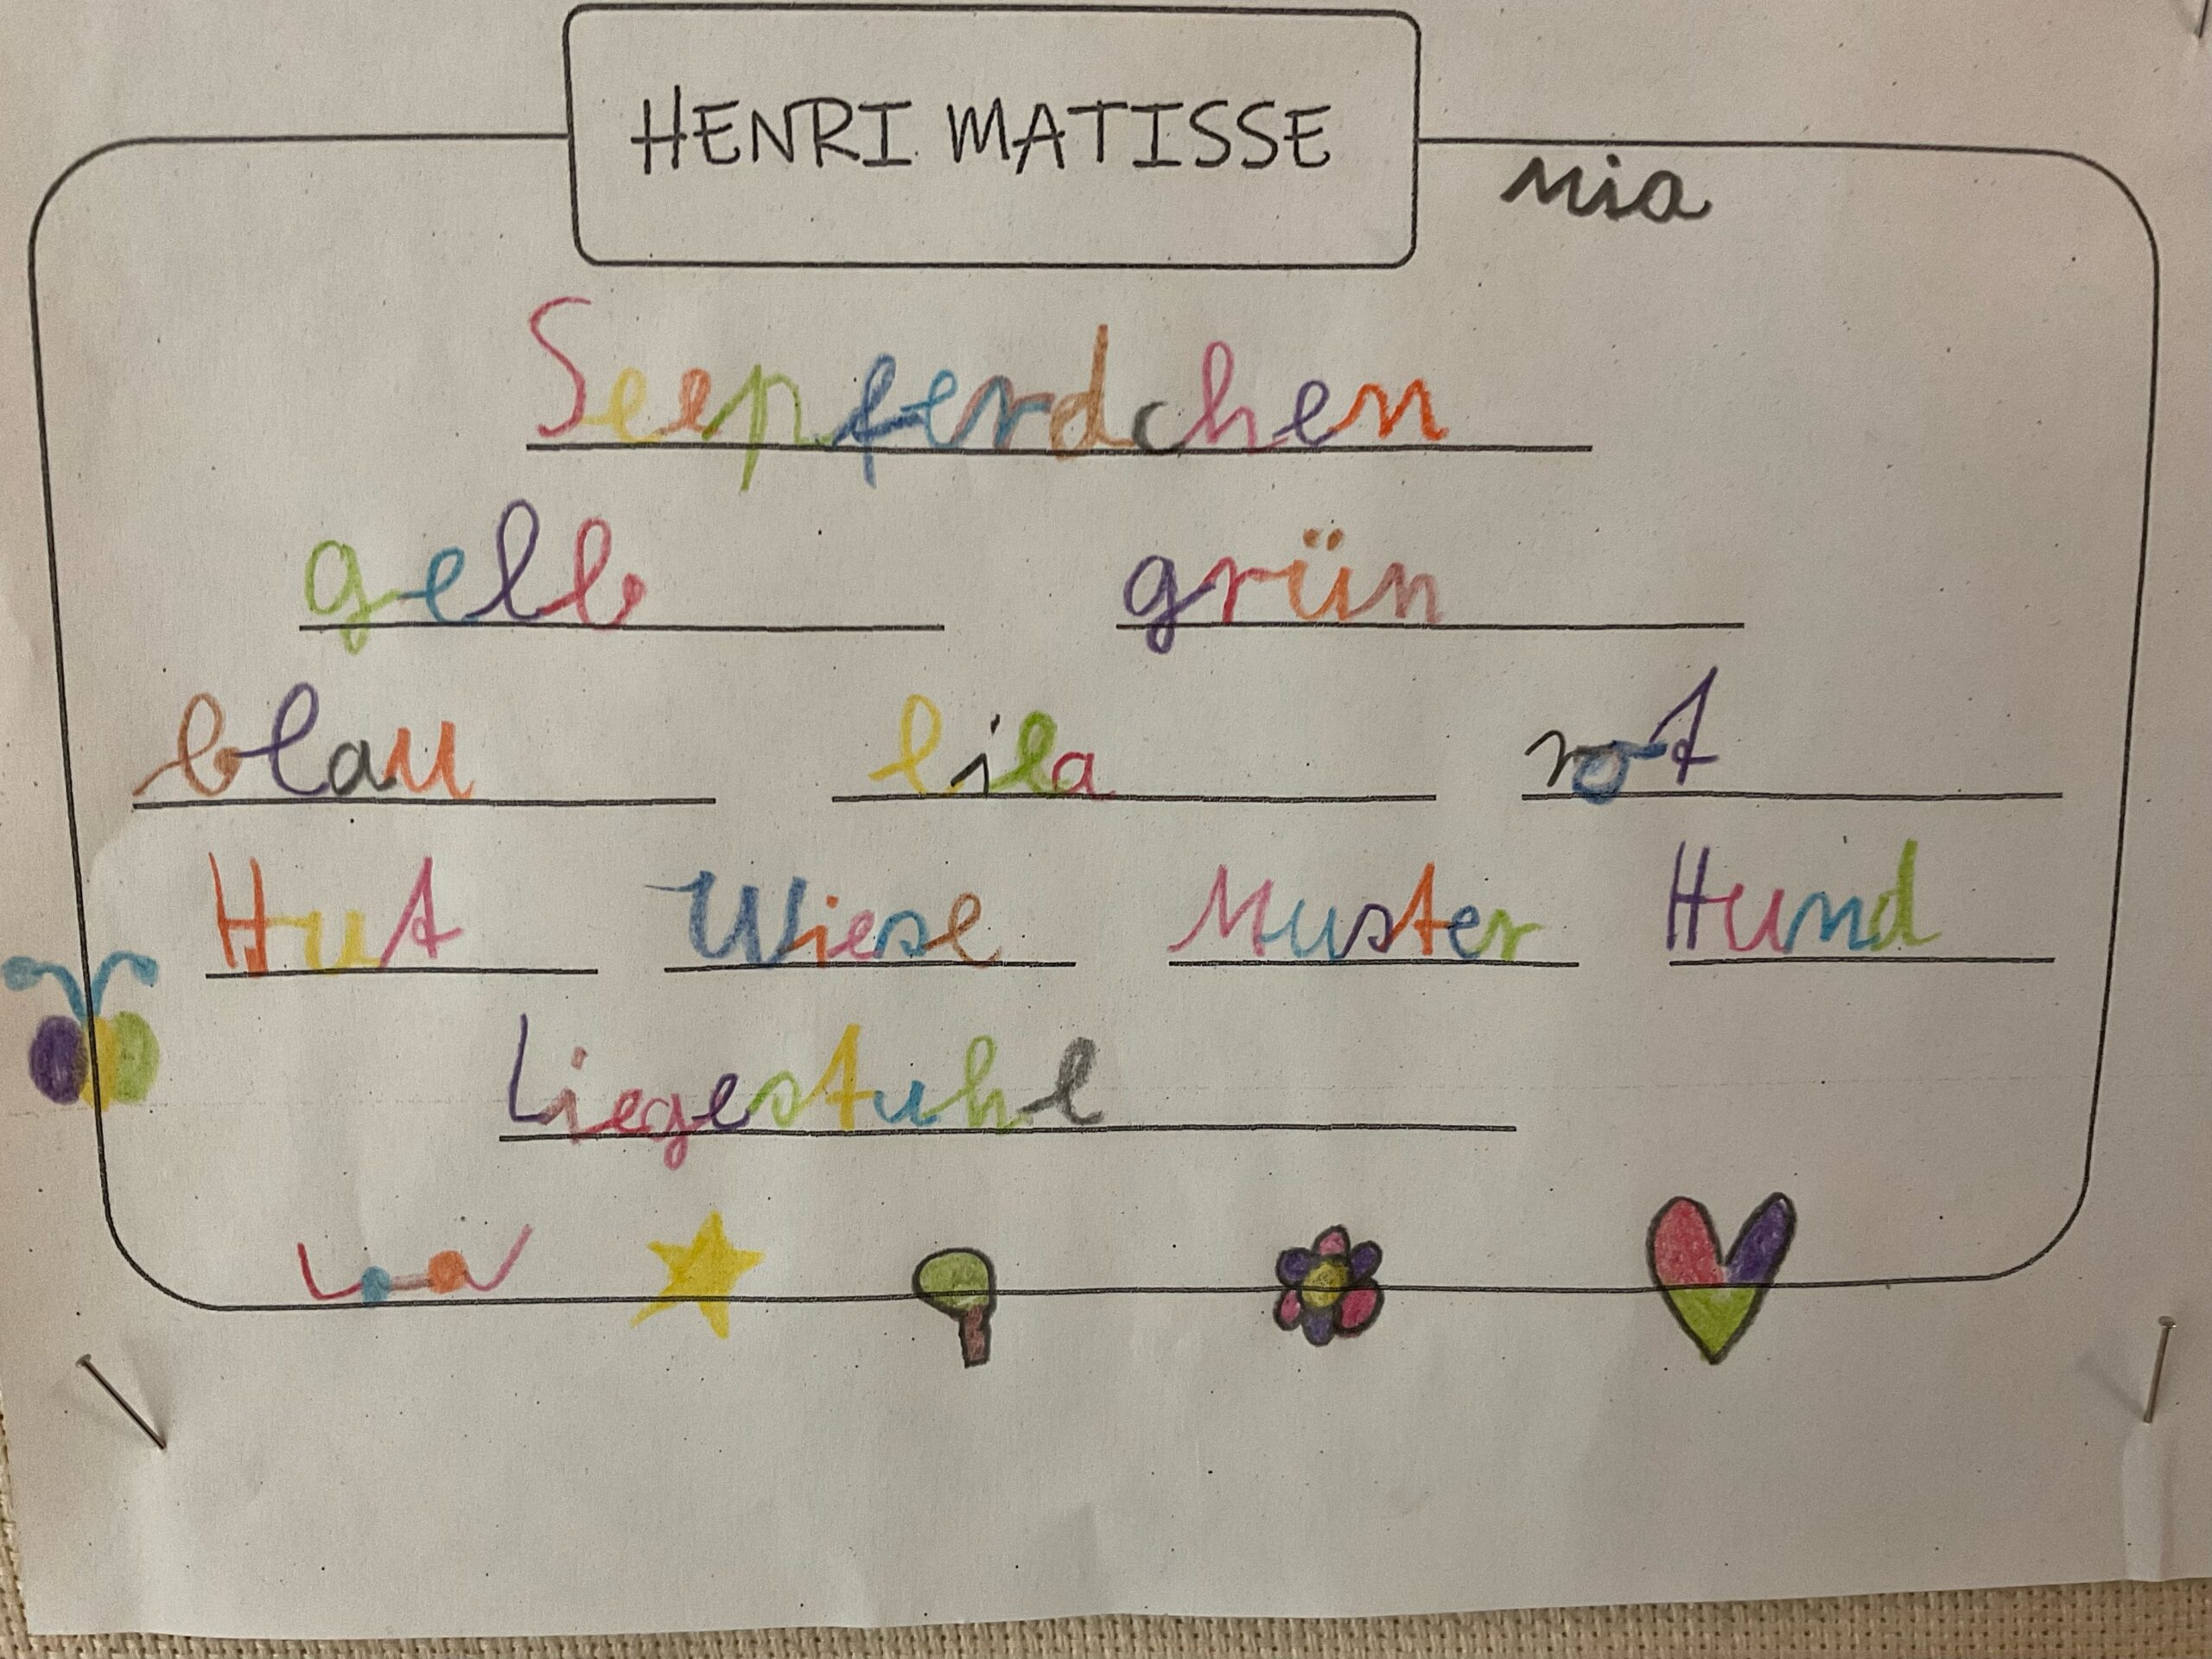 HENRI MATISSE
nia
Seepferdchen
gelb grün
blau lila rot
Hut Wiese Muster Hund
Liegestuhl